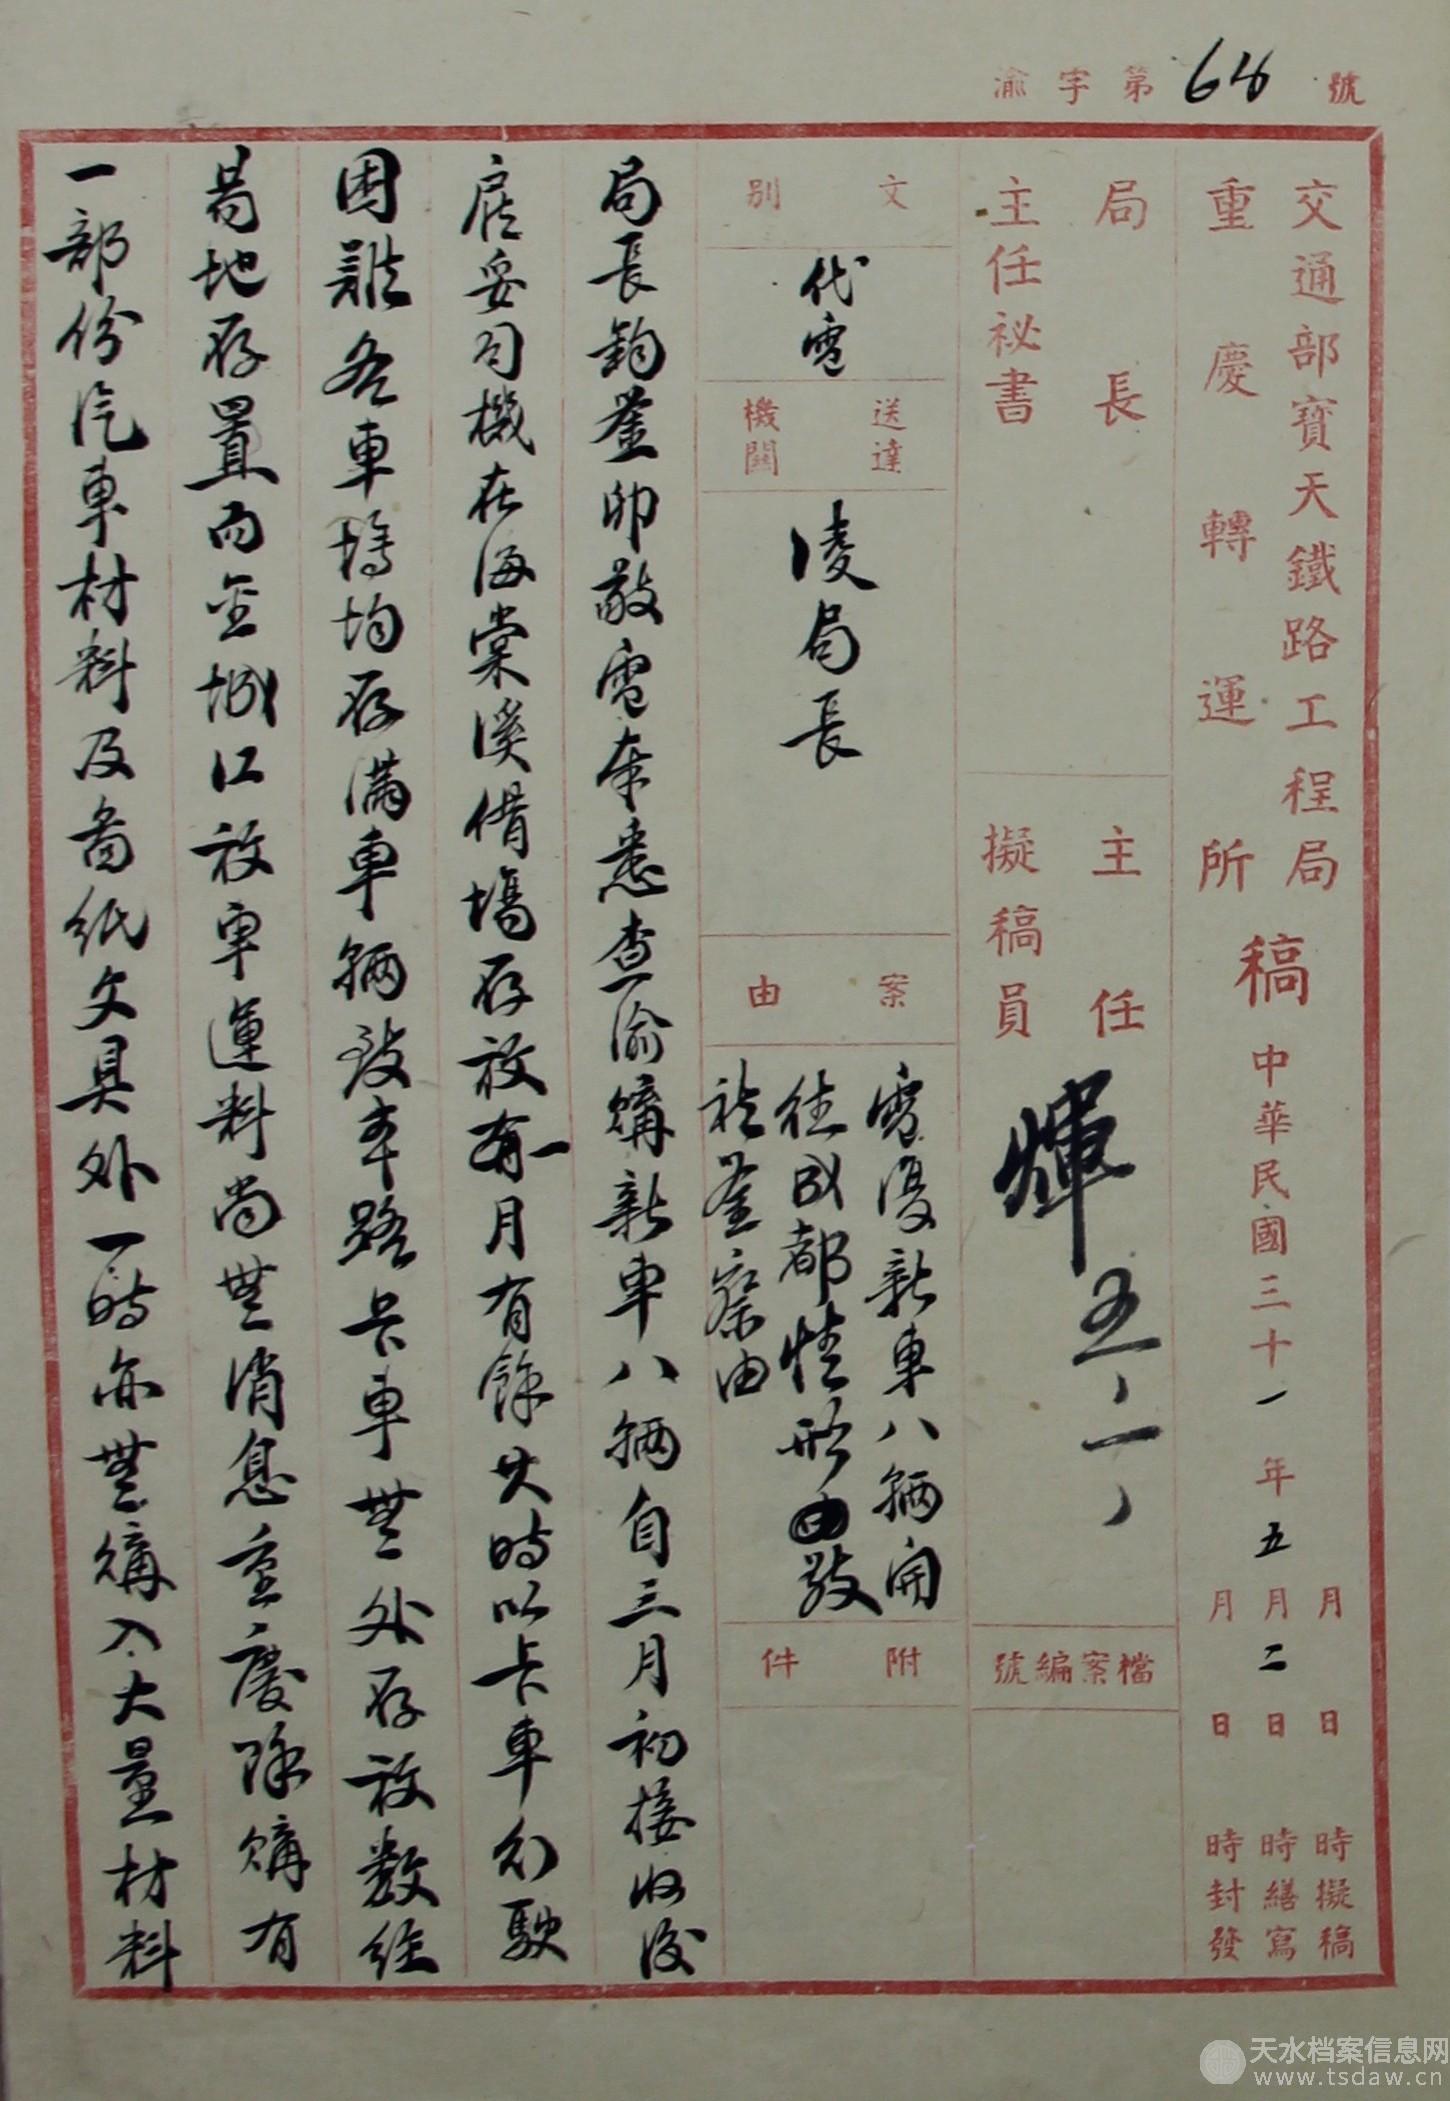 渝字第64號
交通部寶天鐵路工程局
重慶轉運所
稿
中華民國三十一年五月二日
月 日 時擬稿
月 日 時繕寫
月 日 時封發
局長
主任秘書
主任 輝 五、一、
擬稿員
檔案編號
文別
代電
送達機關
凌局長
案由
電復新車八輛開
往成都情形敬
祈鑒察由
附件
局長鈞鑒卯敬電奉悉查渝購新車八輛自三月初接收後
雇妥司機在海棠溪借場存放一月有餘其時以卡車行駛
困難各車場均存滿車輛致本路卡車無處存放數經
易地存置而金城江放車運料尚無消息重慶除購有
一部份汽車材料及圖紙文具外一時亦無購入大量材料
天水档案信息网
www.tsdaw.cn